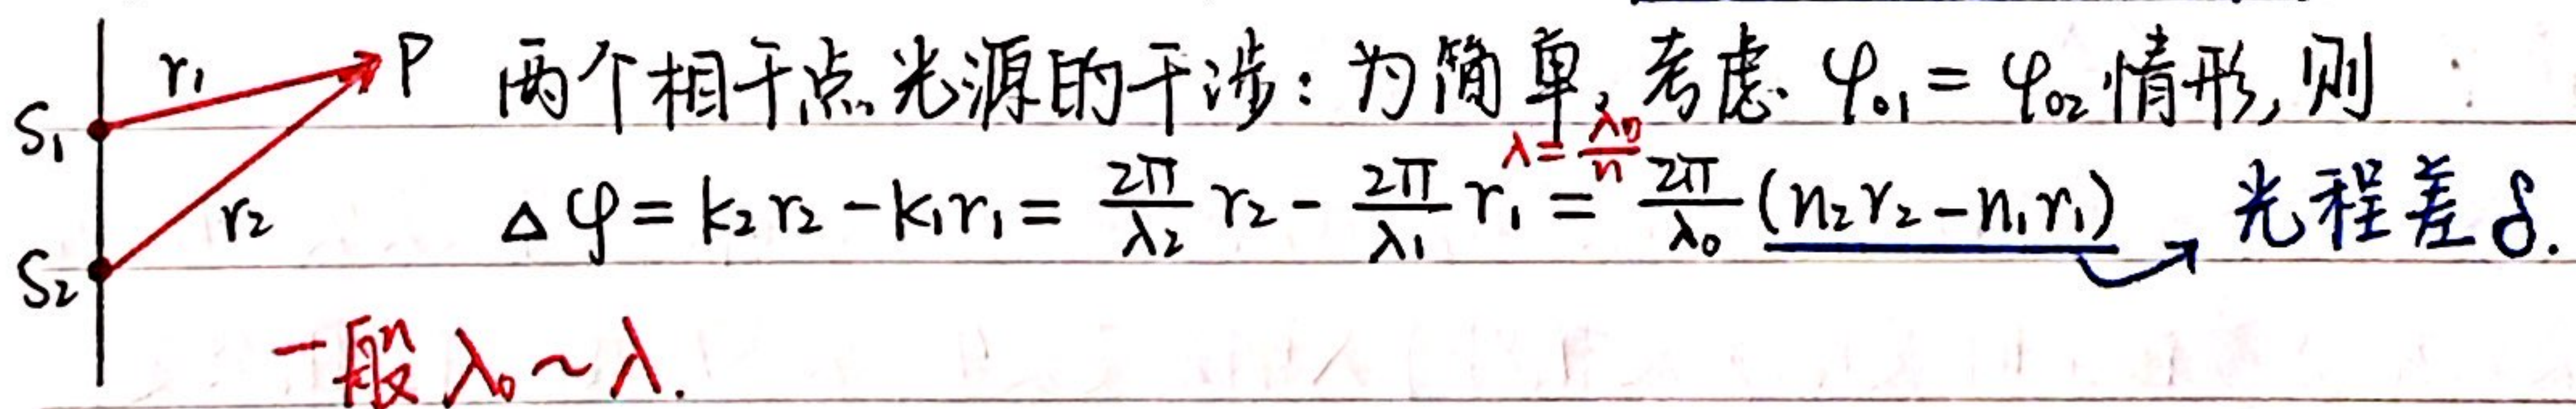 r₁ P 两个相干点光源的干涉：为简单，考虑 φ₀₁ = φ₀₂ 情形，则
S₁
λ = λ₀/n
r₂ Δφ = k₂r₂ - k₁r₁ = 2π/λ₂ r₂ - 2π/λ₁ r₁ = 2π/λ₀ (n₂r₂ - n₁r₁) → 光程差 δ.
S₂
一般 λ₀ ~ λ.